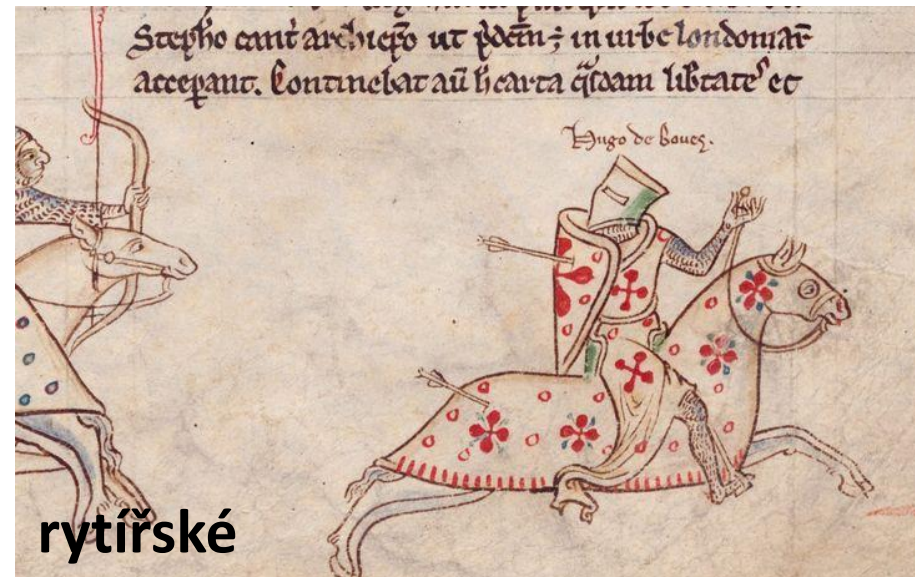 Stepħo cant̄ archiep̄o ut p̄dcm̄; in urbe londoniar̄
acceperant. Continebat aū h carta q̄sdam lib̄tates et
Hugo de boues.
rytířské